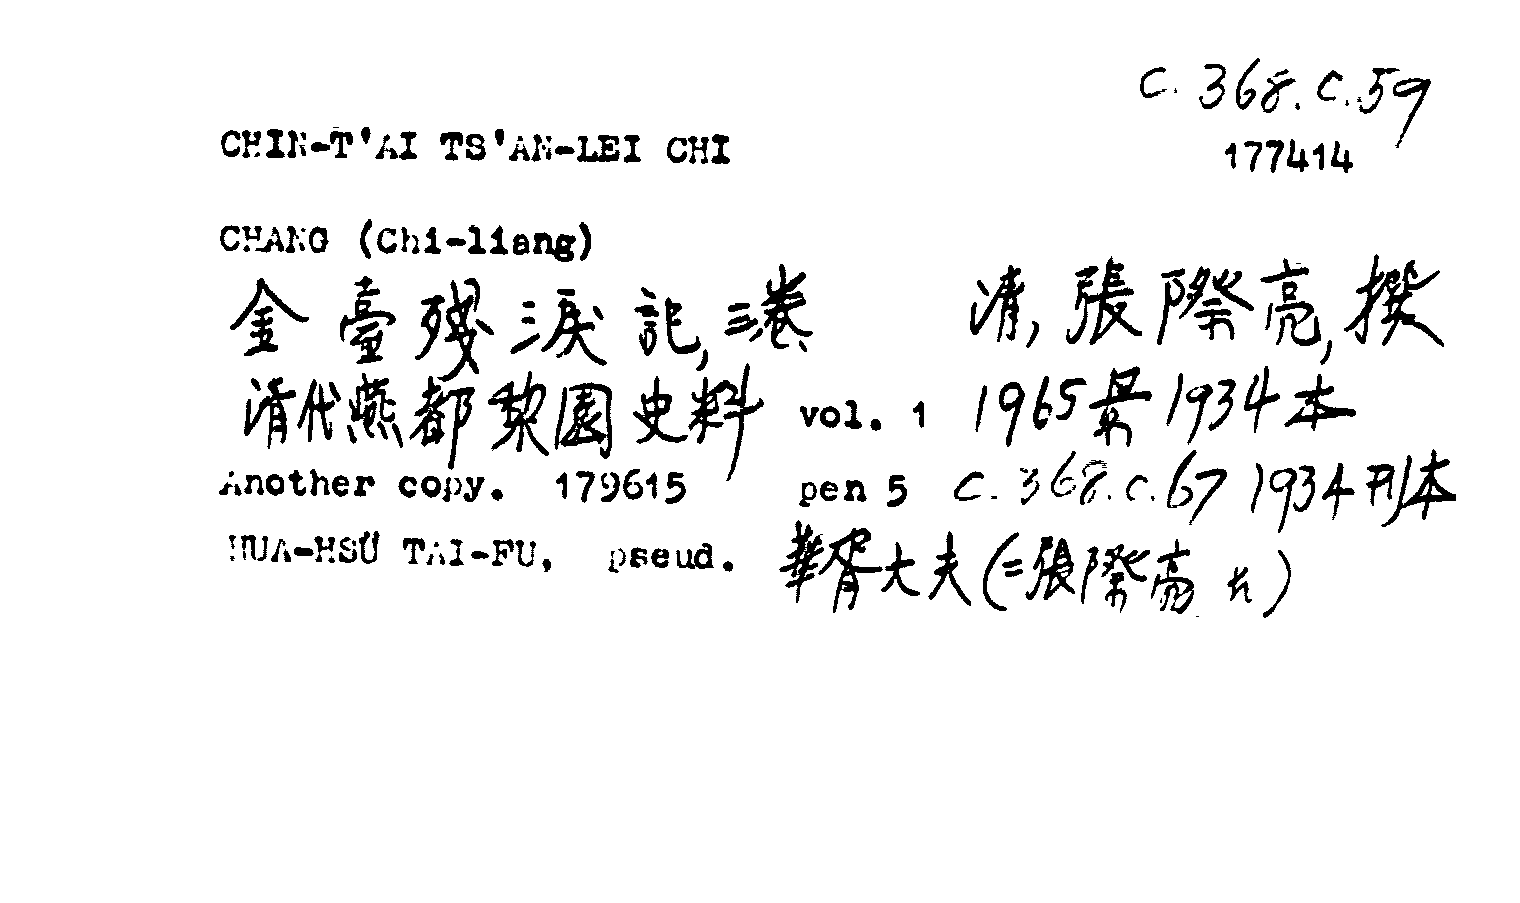 C. 368. C. 59
CHIN-T'AI TS'AN-LEI CHI
177414
CHANG (Chi-liang)
金臺殘淚記, 三卷 清, 張際亮, 撰
清代燕都梨園史料 vol. 1 1965景1934本
Another copy. 179615 pen 5 C. 368. C. 67 1934刊本
HUA-HSÜ TAI-FU, pseud. 華胥大夫(=張際亮)